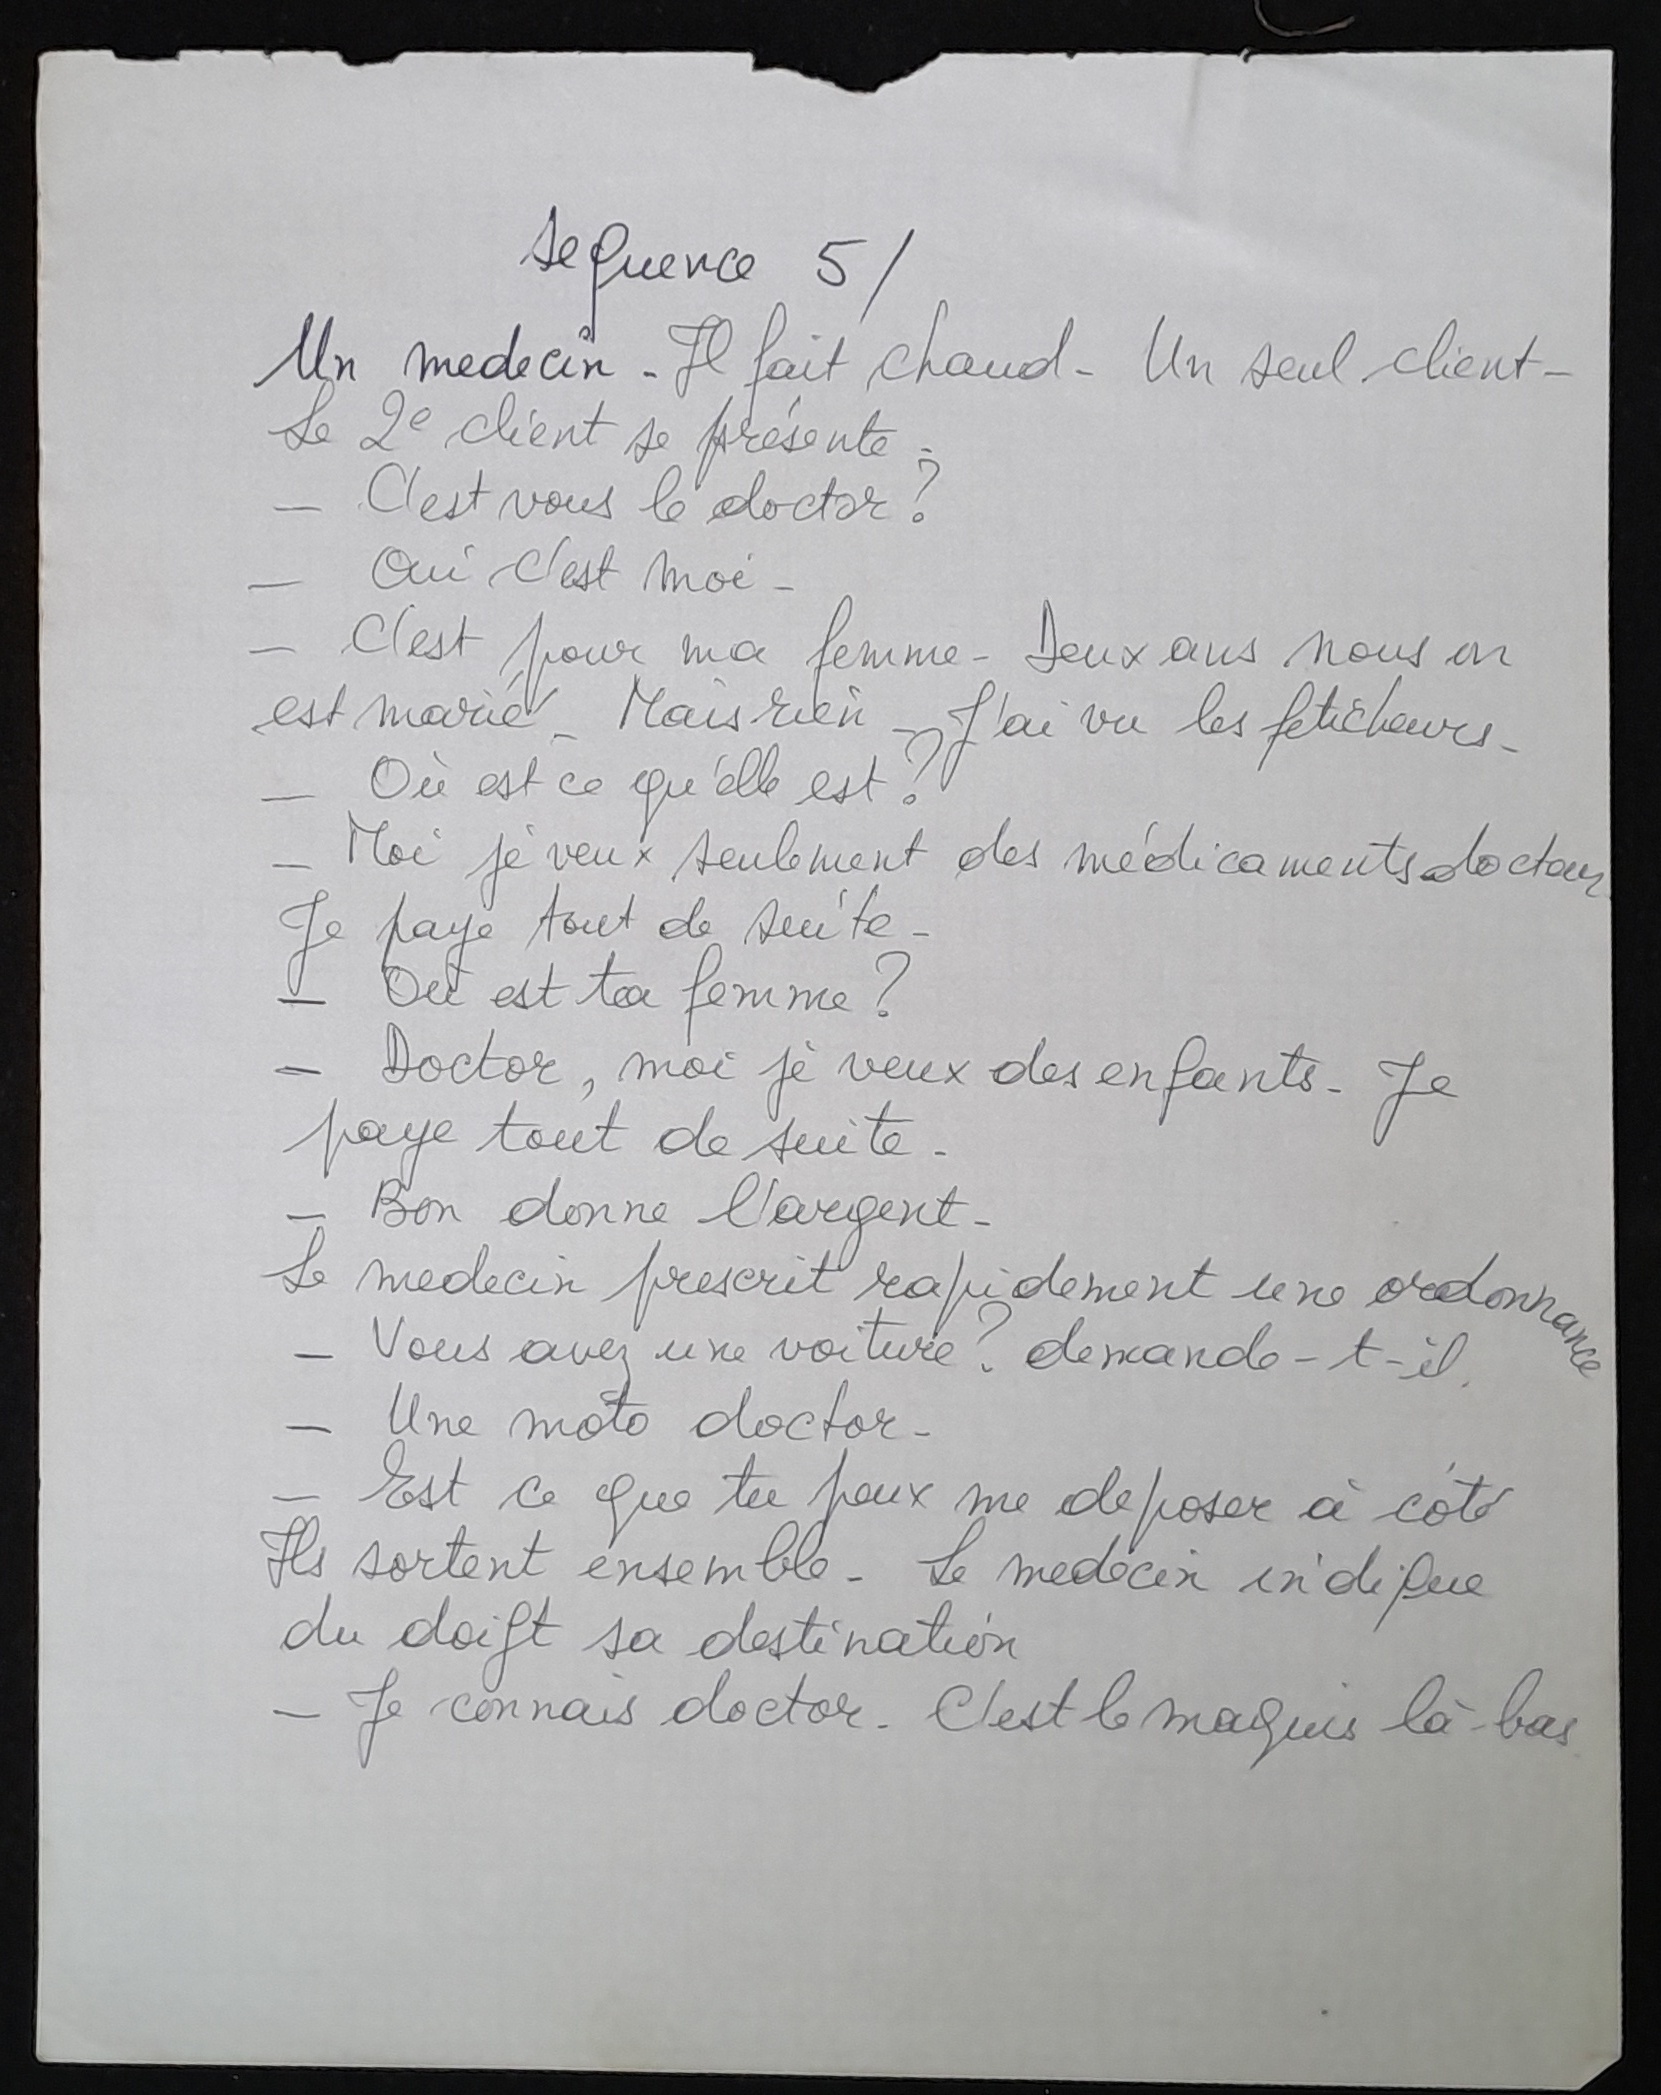 sequence 5/
Un medecin - Il fait chaud - Un seul client -
Le 2e client se présente -
- C'est vous le doctor ?
- Oui c'est moi -
- C'est pour ma femme - Deux ans nous on
est marié - Mais rien - J'ai vu les féticheurs -
- Où est ce qu'elle est ?
- Moi je veux seulement des médicaments doctor
Je paye tout de suite -
- Où est ta femme ?
- Doctor, moi je veux des enfants - Je
paye tout de suite -
- Bon donne l'argent -
Le medecin prescrit rapidement une ordonnance
- Vous avez une voiture ? demande-t-il.
- Une moto doctor -
- Est ce que tu peux me deposer à côté
Ils sortent ensemble - Le medecin indique
du doigt sa destination
- Je connais doctor - C'est le maquis là-bas